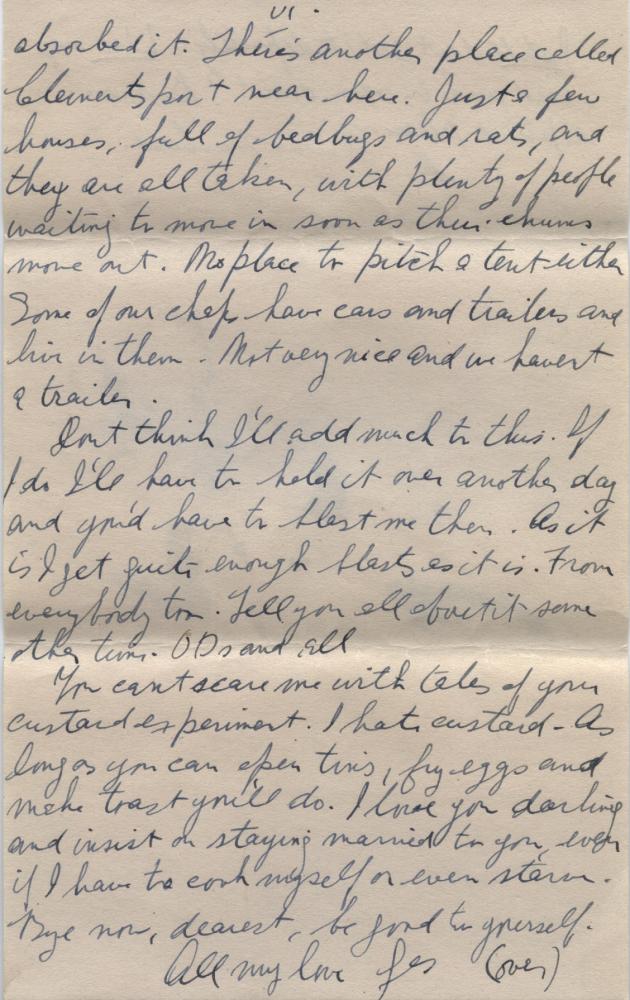 VI.
absorbed it. There's another place called
Clementsport near here. Just a few
houses, full of bedbugs and rats, and
they are all taken, with plenty of people
waiting to move in soon as their chums
move out. No place to pitch a tent either
Some of our chaps have cars and trailers and
live in them. Not very nice and we havent
a trailer.
Dont think I'll add much to this. If
I do I'll have to hold it over another day
and you'd have to blast me then. As it
is I get quite enough blasts as it is. From
everybody too. Tell you all about it some
other time. ODs and all
You cant scare me with tales of your
custard experiment. I hate custard - As
long as you can open tins, fry eggs and
make toast you'll do. I love you darling
and insist on staying married to you, even
if I have to cook myself or even starve.
Bye now, dearest, be good to yourself.
All my love Les (over)